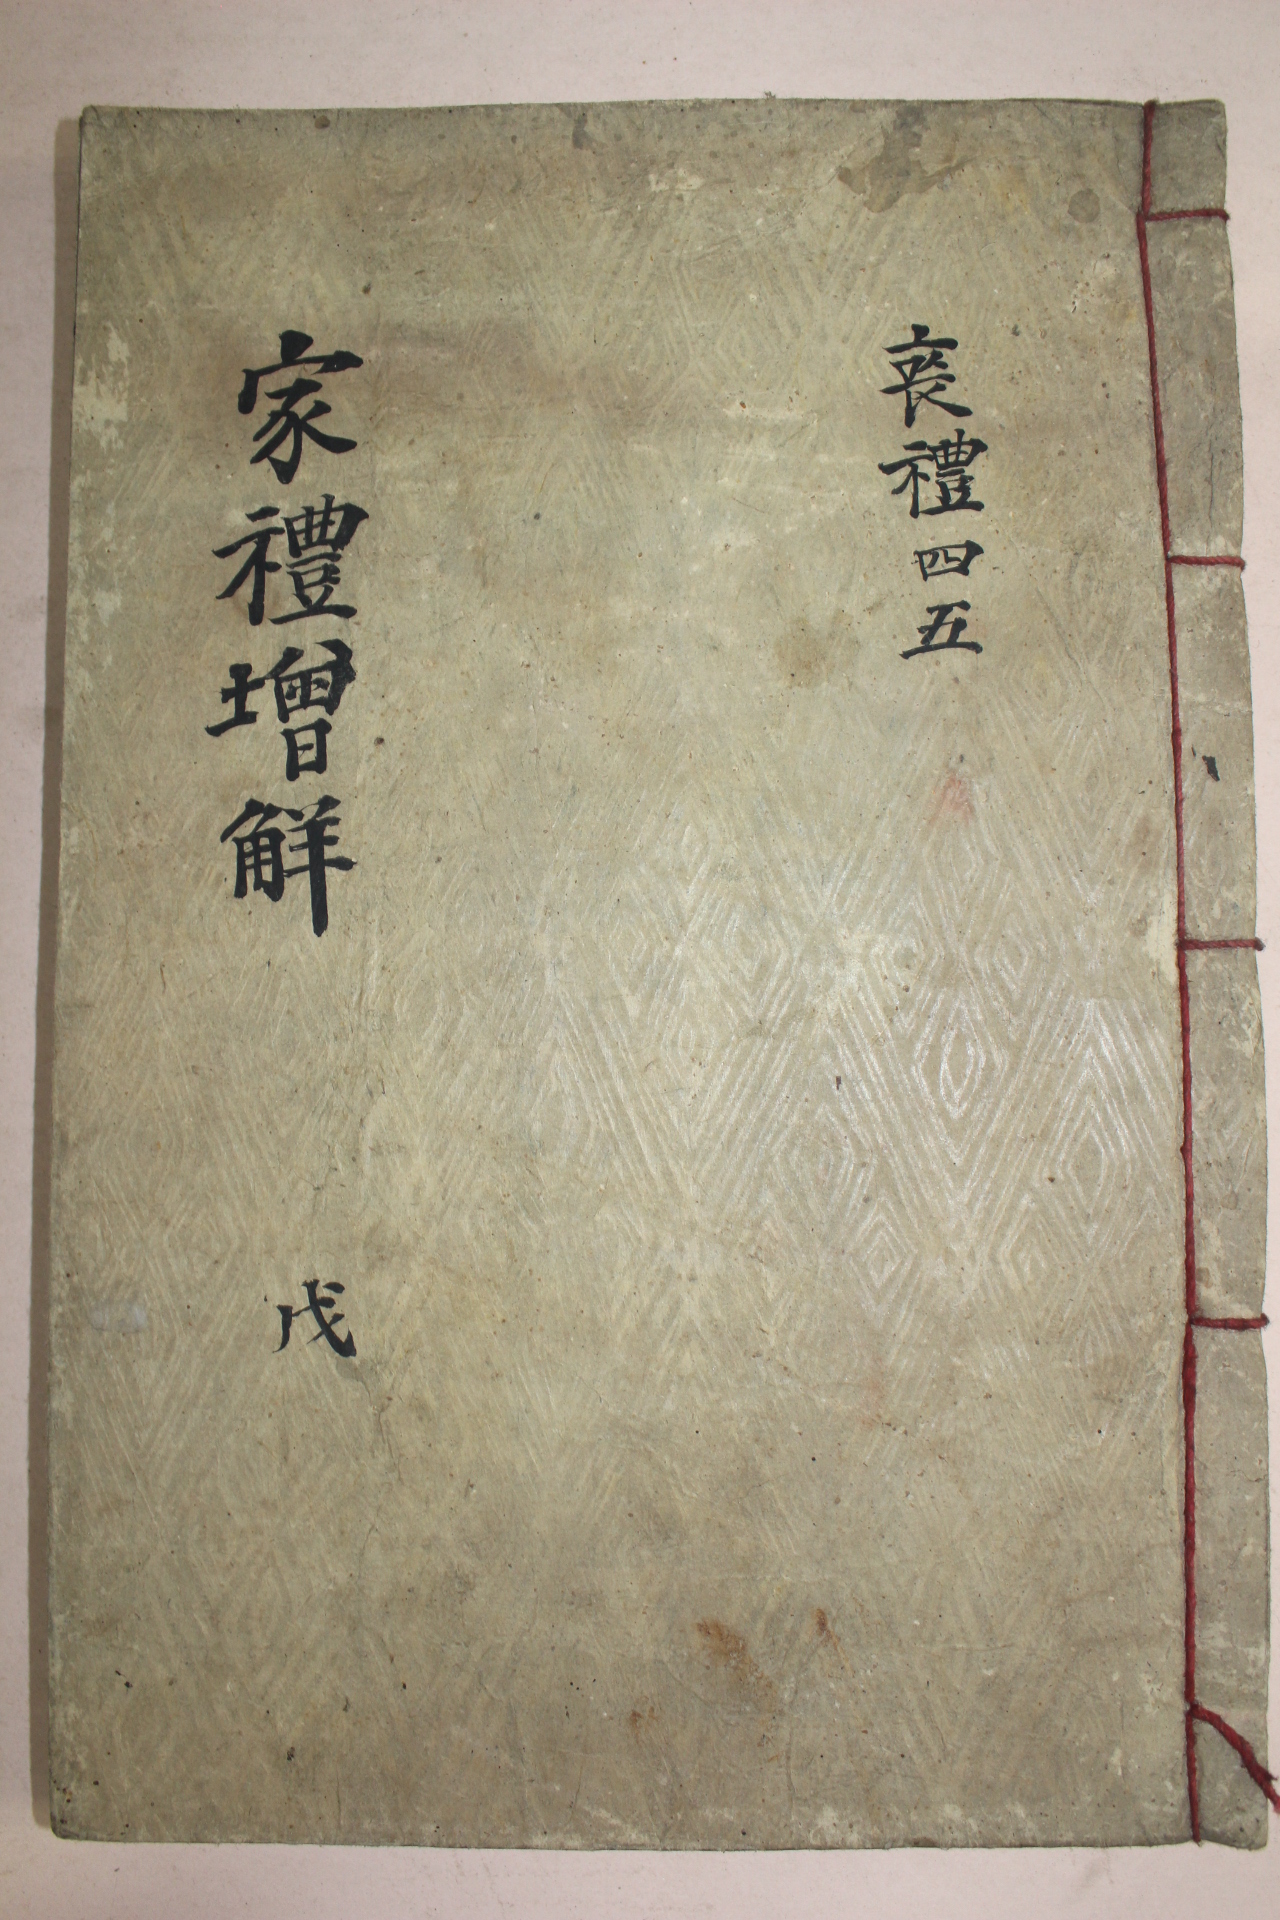 喪禮四五
家禮增解
戊